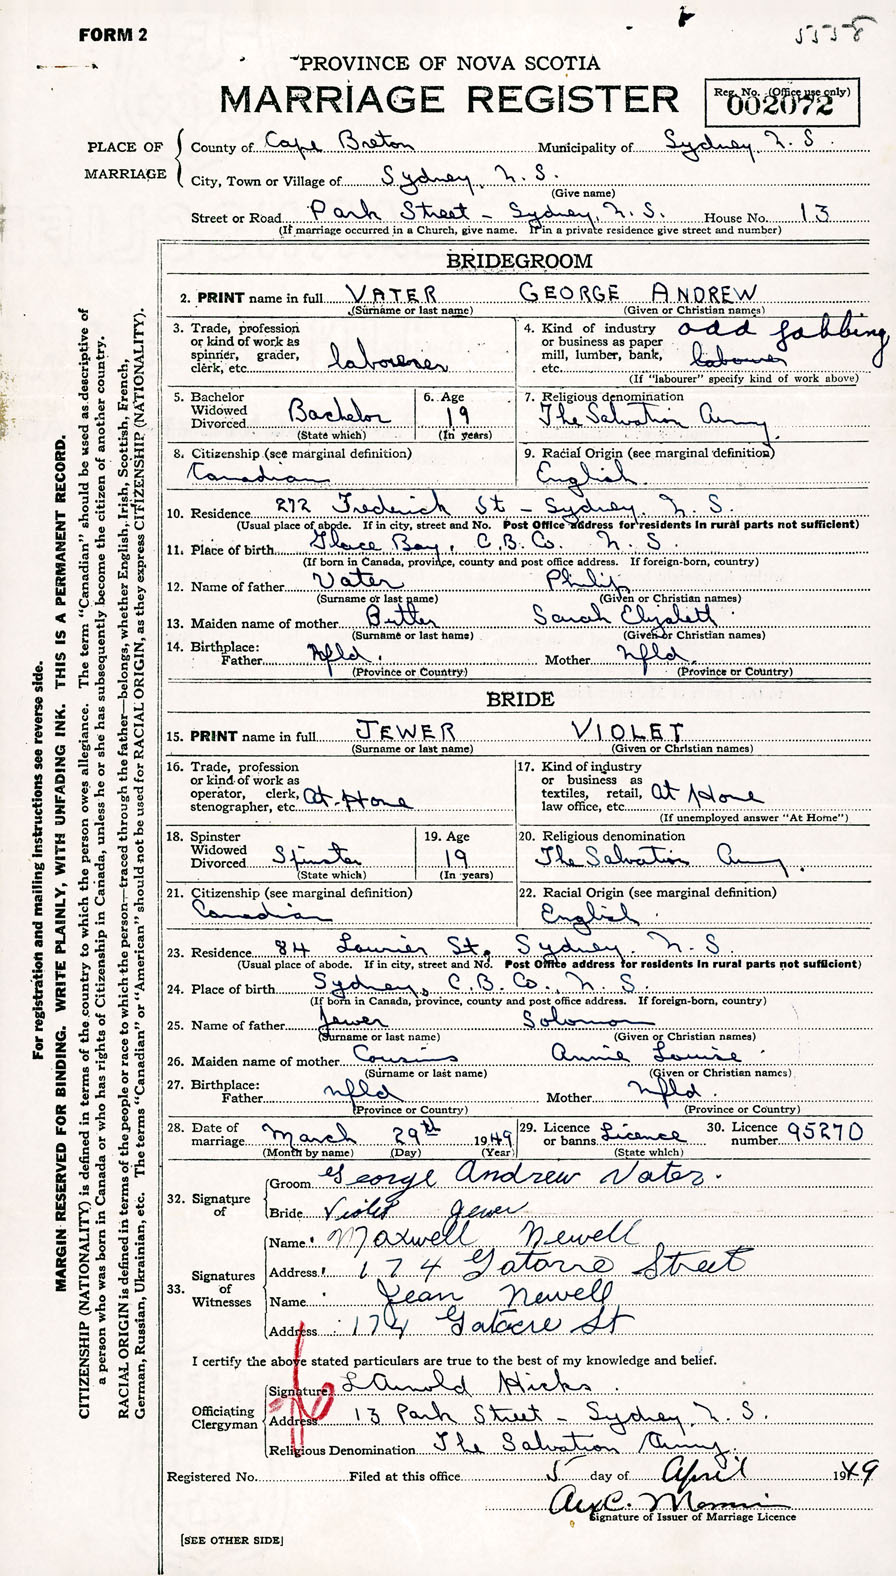 FORM 2
5558
PROVINCE OF NOVA SCOTIA
MARRIAGE REGISTER
Reg. No. (Office use only)
002072
PLACE OF MARRIAGE
County of Cape Breton Municipality of Sydney, N. S.
City, Town or Village of Sydney, N. S.
(Give name)
Street or Road Park Street - Sydney, N. S. House No. 13
(If marriage occurred in a Church, give name. If in a private residence give street and number)
BRIDEGROOM
2. PRINT name in full VATER GEORGE ANDREW
(Surname or last name) (Given or Christian names)
3. Trade, profession or kind of work as spinner, grader, clerk, etc. laborer
4. Kind of industry or business as paper mill, lumber, bank, etc. odd jobbing labourer
(If "labourer" specify kind of work above)
5. Bachelor Widowed Divorced Bachelor
(State which)
6. Age 19
(In years)
7. Religious denomination
The Salvation Army
8. Citizenship (see marginal definition)
Canadian
9. Racial Origin (see marginal definition)
English
10. Residence 272 Frederick St - Sydney, N. S.
(Usual place of abode. If in city, street and No. Post Office address for residents in rural parts not sufficient)
11. Place of birth Glace Bay, C.B. Co. N. S.
(If born in Canada, province, county and post office address. If foreign-born, country)
12. Name of father Vater Philip
(Surname or last name) (Given or Christian names)
13. Maiden name of mother Butler Sarah Elizabeth
(Surname or last name) (Given or Christian names)
14. Birthplace:
Father Nfld. Mother Nfld.
(Province or Country) (Province or Country)
BRIDE
15. PRINT name in full JEWER VIOLET
(Surname or last name) (Given or Christian names)
16. Trade, profession or kind of work as operator, clerk, stenographer, etc. At Home
17. Kind of industry or business as textiles, retail, law office, etc. At Home
(If unemployed answer "At Home")
18. Spinster Widowed Divorced Spinster
(State which)
19. Age 19
(In years)
20. Religious denomination
The Salvation Army.
21. Citizenship (see marginal definition)
Canadian
22. Racial Origin (see marginal definition)
English
23. Residence 84 Laurier St. Sydney. N. S.
(Usual place of abode. If in city, street and No. Post Office address for residents in rural parts not sufficient)
24. Place of birth Sydney, C.B. Co., N. S.
(If born in Canada, province, county and post office address. If foreign-born, country)
25. Name of father Jewer Solomon
(Surname or last name) (Given or Christian names)
26. Maiden name of mother Cousins Annie Louise
(Surname or last name) (Given or Christian names)
27. Birthplace:
Father Nfld Mother Nfld.
(Province or Country) (Province or Country)
28. Date of marriage March 29th 1949
(Month by name) (Day) (Year)
29. Licence or banns Licence
(State which)
30. Licence number 95270
32. Signature of
Groom George Andrew Vater.
Bride Violet Jewer
33. Signatures of Witnesses
Name Maxwell Newell
Address 174 Gatacre Street
Name Jean Newell
Address 174 Gatacre St
I certify the above stated particulars are true to the best of my knowledge and belief.
Officiating Clergyman
Signature L Arnold Hicks.
Address 13 Park Street - Sydney, N. S.
Religious Denomination The Salvation Army.
Registered No. Filed at this office 5 day of April 1949
Signature of Issuer of Marriage Licence
[SEE OTHER SIDE]
For registration and mailing instructions see reverse side.
MARGIN RESERVED FOR BINDING. WRITE PLAINLY, WITH UNFADING INK. THIS IS A PERMANENT RECORD.
CITIZENSHIP (NATIONALITY) is defined in terms of the country to which the person owes allegiance. The term "Canadian" should be used as descriptive of
a person who was born in Canada or who has rights of Citizenship in Canada, unless he or she has subsequently become the citizen of another country.
RACIAL ORIGIN is defined in terms of the people or race to which the person—traced through the father—belongs, whether English, Irish, Scottish, French,
German, Russian, Ukrainian, etc. The terms "Canadian" or "American" should not be used for RACIAL ORIGIN, as they express CITIZENSHIP (NATIONALITY).